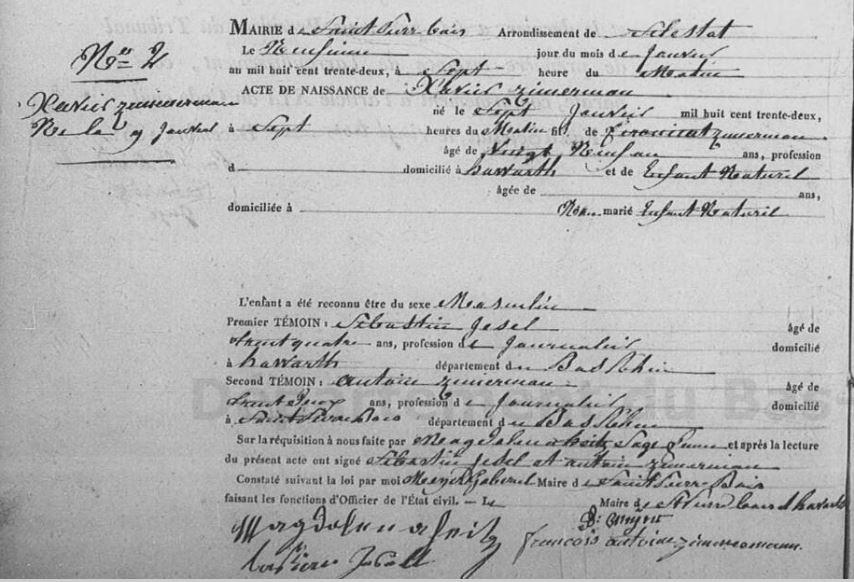 Nº 2
Xavier zimmerman
Né le 9 Janvier
MAIRIE de Saint Pierre bois Arrondissement de Selestat
Le Neufieme jour du mois de Janvier
an mil huit cent trente-deux, à Sept heure du Matin
ACTE DE NAISSANCE de Xavier zimerman
né le Sept Janvier mil huit cent trente-deux,
à Sept heures du Matin fils de zimerman
âgé de Vingt Neuf an ans, profession
d domicilié à hawarth et de Enfant Naturel
âgée de ans,
domiciliée à Non marié Enfant Naturel
L'enfant a été reconnu être du sexe Masculin
Premier TÉMOIN : Sebastien Jesel âgé de
trent quatre ans, profession de Journalier domicilié
à hawarth département du Bas Rhin
Second TÉMOIN : antoin zimerman âgé de
trent Deux ans, profession de Journalier domicilié
à Saint Pierre Bois département du Bas Rhin
Sur la réquisition à nous faite par Magdalena Seitz Sage femme et après la lecture
du présent acte ont signé Sebastien Jesel et antoin zimerman
Constaté suivant la loi par moi Maire de Saint Pierre Bois
faisant les fonctions d'Officier de l'État civil. — Le Maire de St Pierre bois et hawarth
Magdalena Seitz
francois antoine zimmermann.